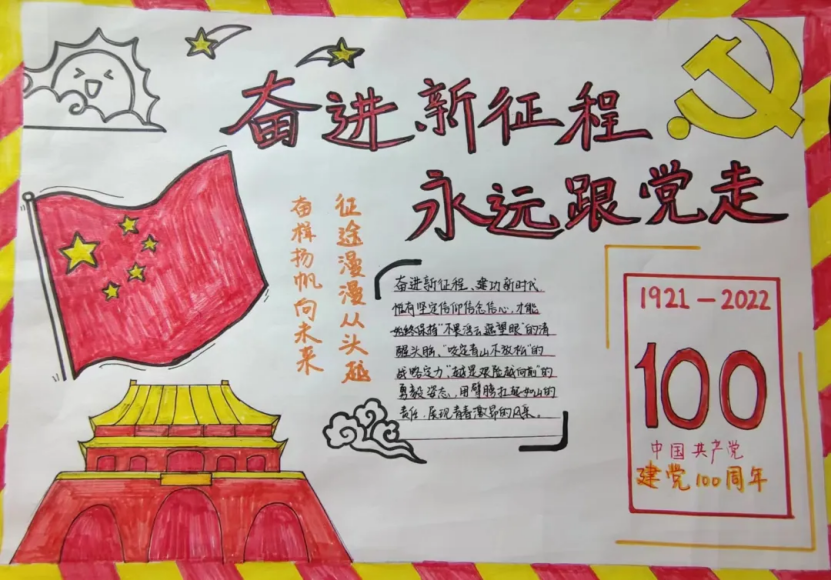 奋进新征程
永远跟党走
征途漫漫从头越
奋楫扬帆向未来
奋进新征程、建功新时代
惟有坚定信仰信念信心,才能
始终保持“不畏浮云遮望眼”的清
醒头脑、“咬定青山不放松”的
战略定力“越是艰险越向前”的
勇毅姿态,用臂膀扛起如山的
责任,展现青春激昂的风采。
1921-2022
100
中国共产党
建党100周年